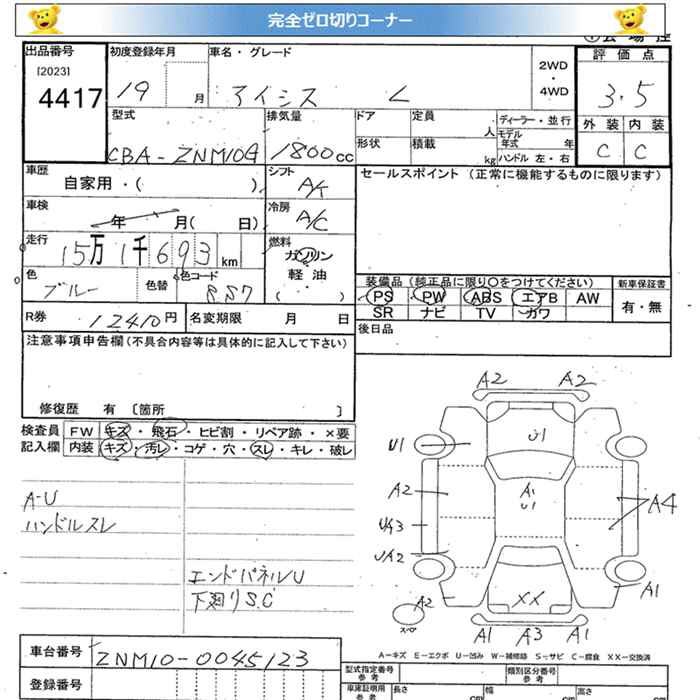 完全ゼロ切りコーナー
出品番号
[2023]
4417
初度登録年月
19 月
車名・グレード
アイシス L
2WD
・
4WD
評価点
3.5
外装 内装
C C
型式
CBA-ZNM10G
排気量
1800cc
ドア
形状
定員
人
積載
kg
ディーラー・並行
モデル年式 年
ハンドル 左・右
車歴
自家用・( )
シフト
A/T
セールスポイント(正常に機能するものに限ります)
車検
年 月( 日)
冷房
A/C
走行
15万1千693km
燃料
ガソリン
軽油
( )
色
ブルー
色替
色コード
8S7
装備品(純正品に限り○をつけてください)
PS PW ABS エアB AW
SR ナビ TV カワ
新車保証書
有・無
R券
12410円
名変期限 月 日
後日品
注意事項申告欄(不具合内容等は具体的に記入して下さい)
修復歴 有 〔箇所 〕
検査員
記入欄
FW キズ・飛石・ヒビ割・リペア跡・×要
内装 キズ・汚レ・コゲ・穴・スレ・キレ・破レ
A-U
ハンドルスレ
エンドパネルU
下廻りS.C
A2 A2
U1
U1
A2
A1
U1
A4
UA3
UA2
A2
XX
A1
スペア
A1 A3 A1
A-キズ E-エクボ U-凹み W-補修跡 S-サビ C-腐食 XX-交換済
車台番号
ZNM10-0045123
登録番号
型式指定番号
参考
類別区分番号
参考
車庫証明用
参考
長さ
幅
高さ